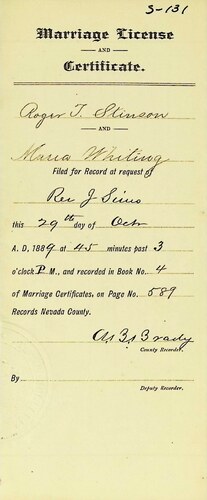 S-131
Marriage License
AND
Certificate.
Roger T. Stinson
AND
Maria Whiting
Filed for Record at request of
Rev J Sims
this 29th day of Oct
A. D, 1889 at 45 minutes past 3
o'clock P M., and recorded in Book No. 4
of Marriage Certificates, on Page No. 589
Records Nevada County.
Brady
County Recorder.
By
Deputy Recorder.